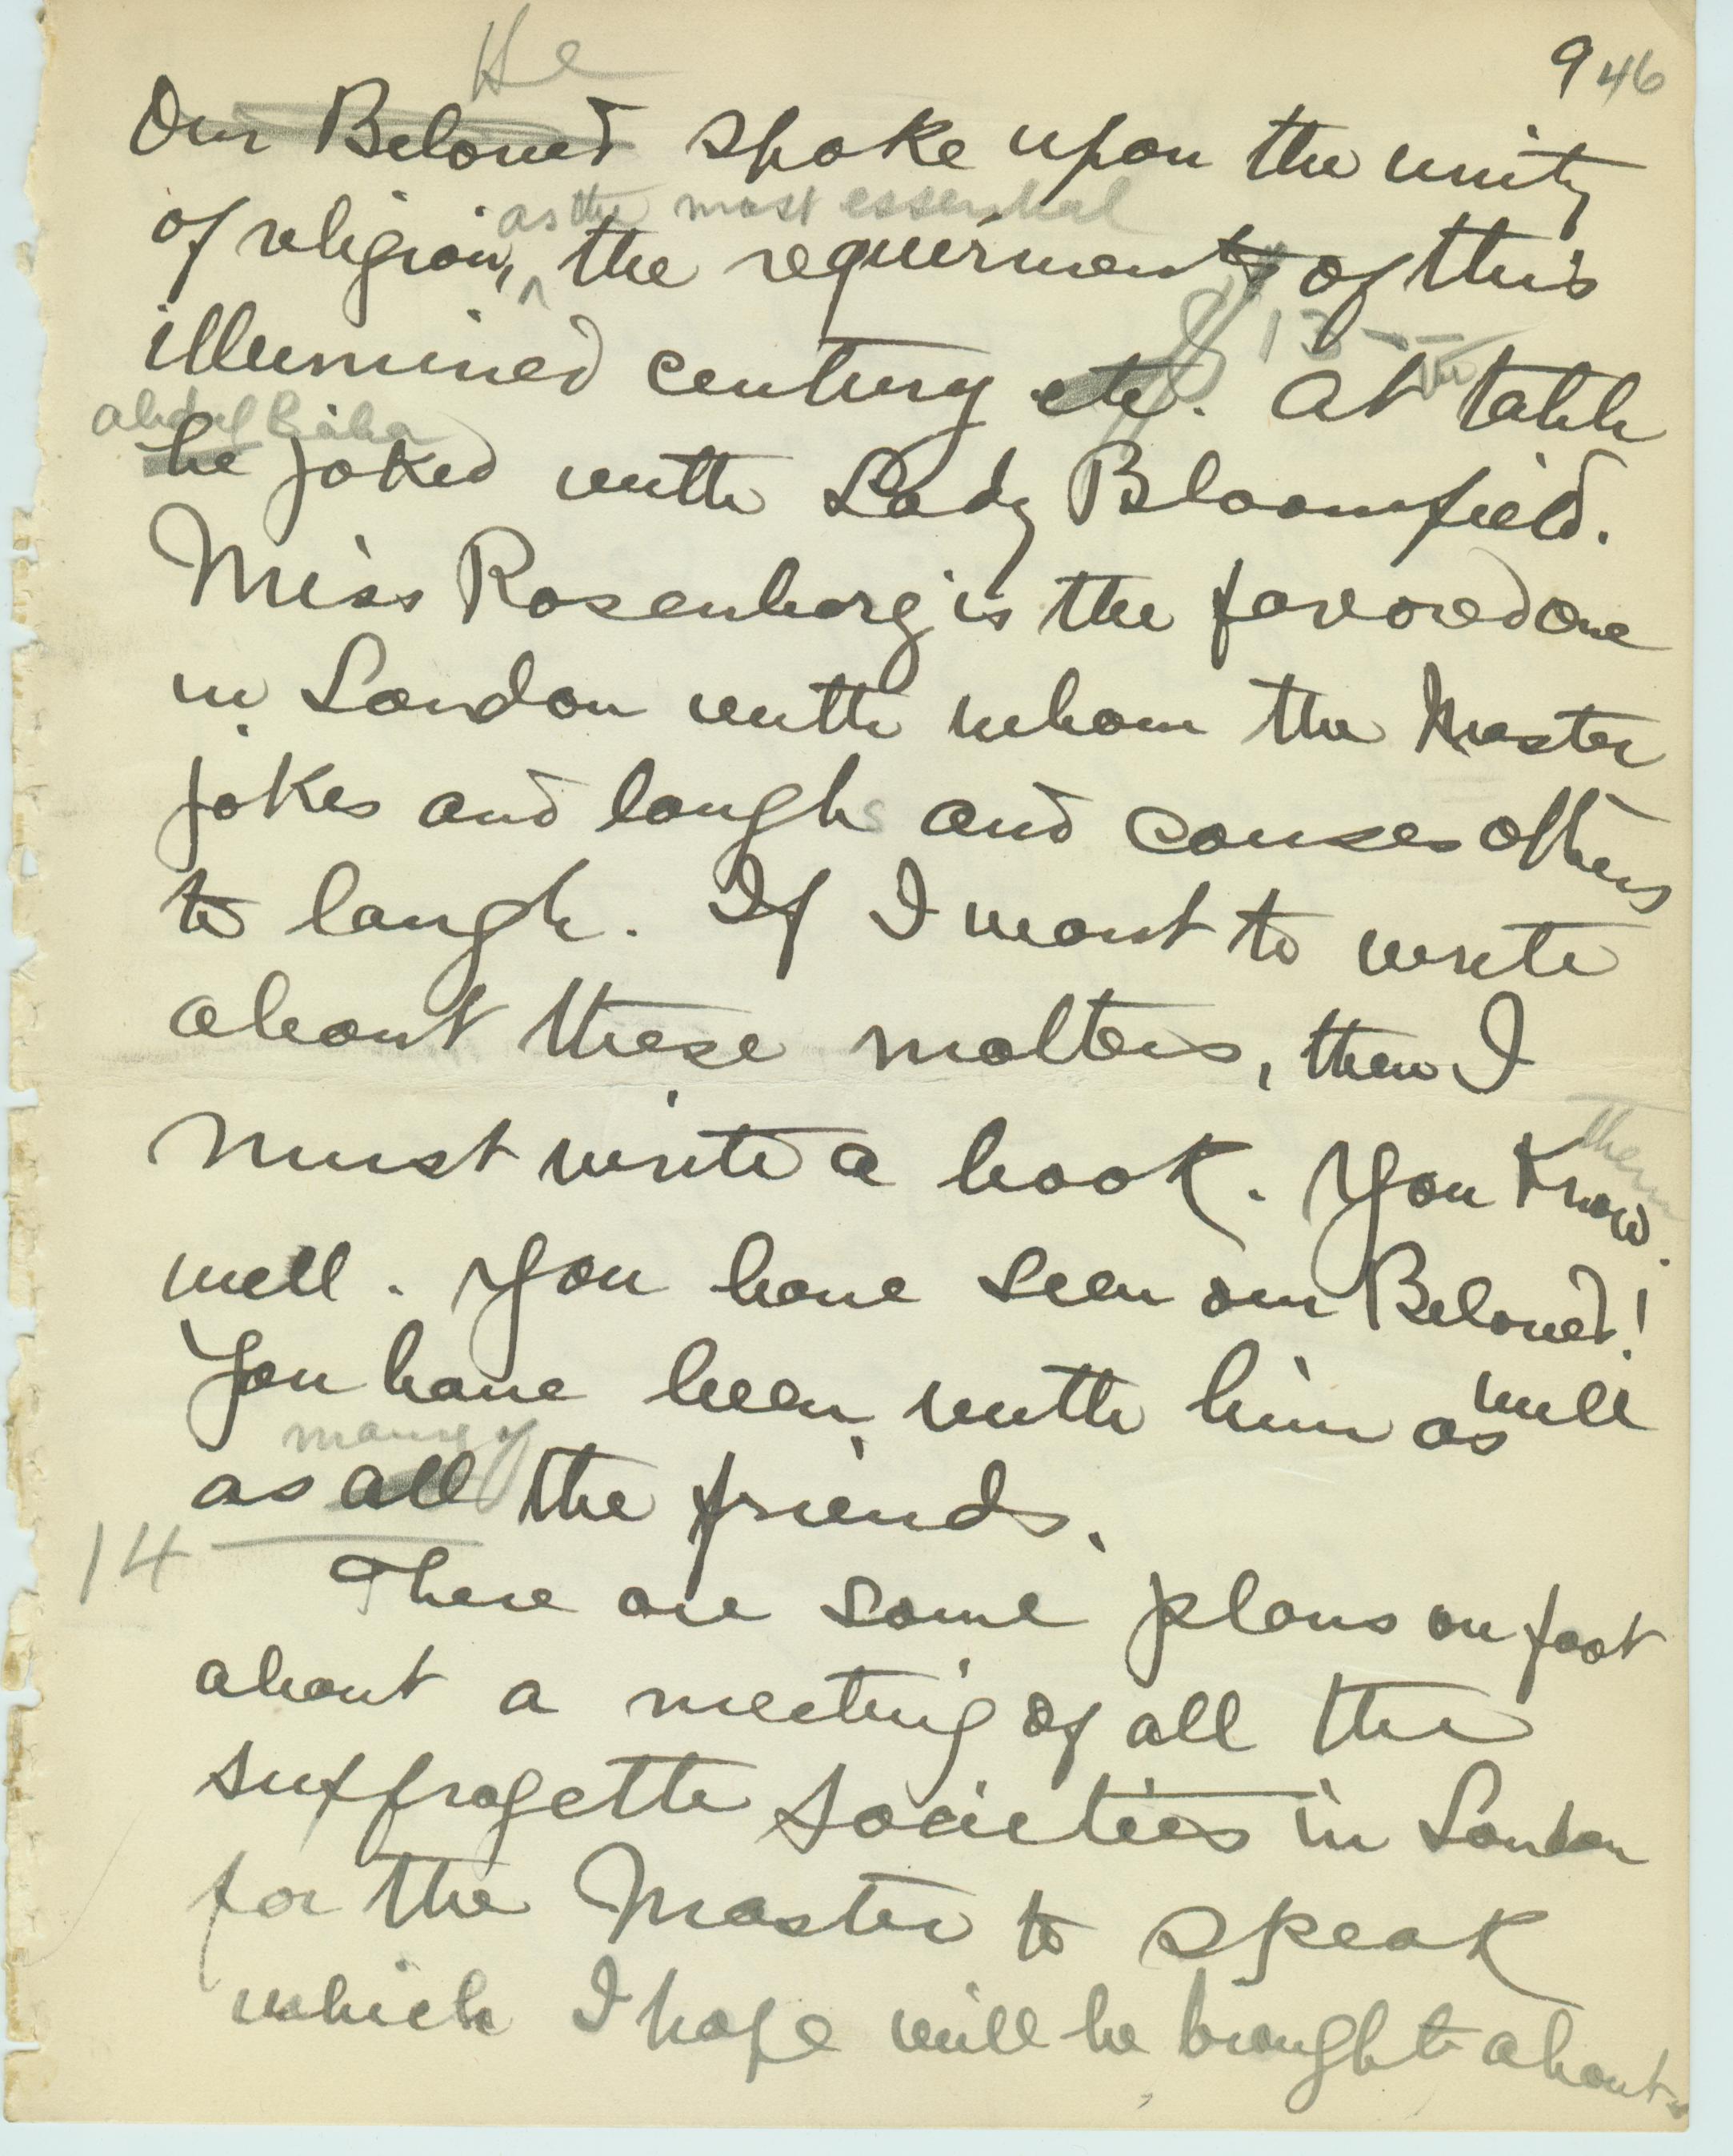 9 46
He
Our Beloved spoke upon the unity
as the most essential
of religion, the requirments of this
13
illumined century etc. At the table
abdul Baha
he joked with Lady Bloomfield.
Miss Rosenberg is the favored one
in London with whom the Master
jokes and laughs and causes others
to laugh. If I want to write
about these matters, then I
them
must write a book. You know
well. You have seen our Beloved!
You have been with him as well
many of
as all the friends.
14
There are some plans on foot
about a meeting of all the
suffragette societies in London
for the Master to speak
which I hope will be brought about.